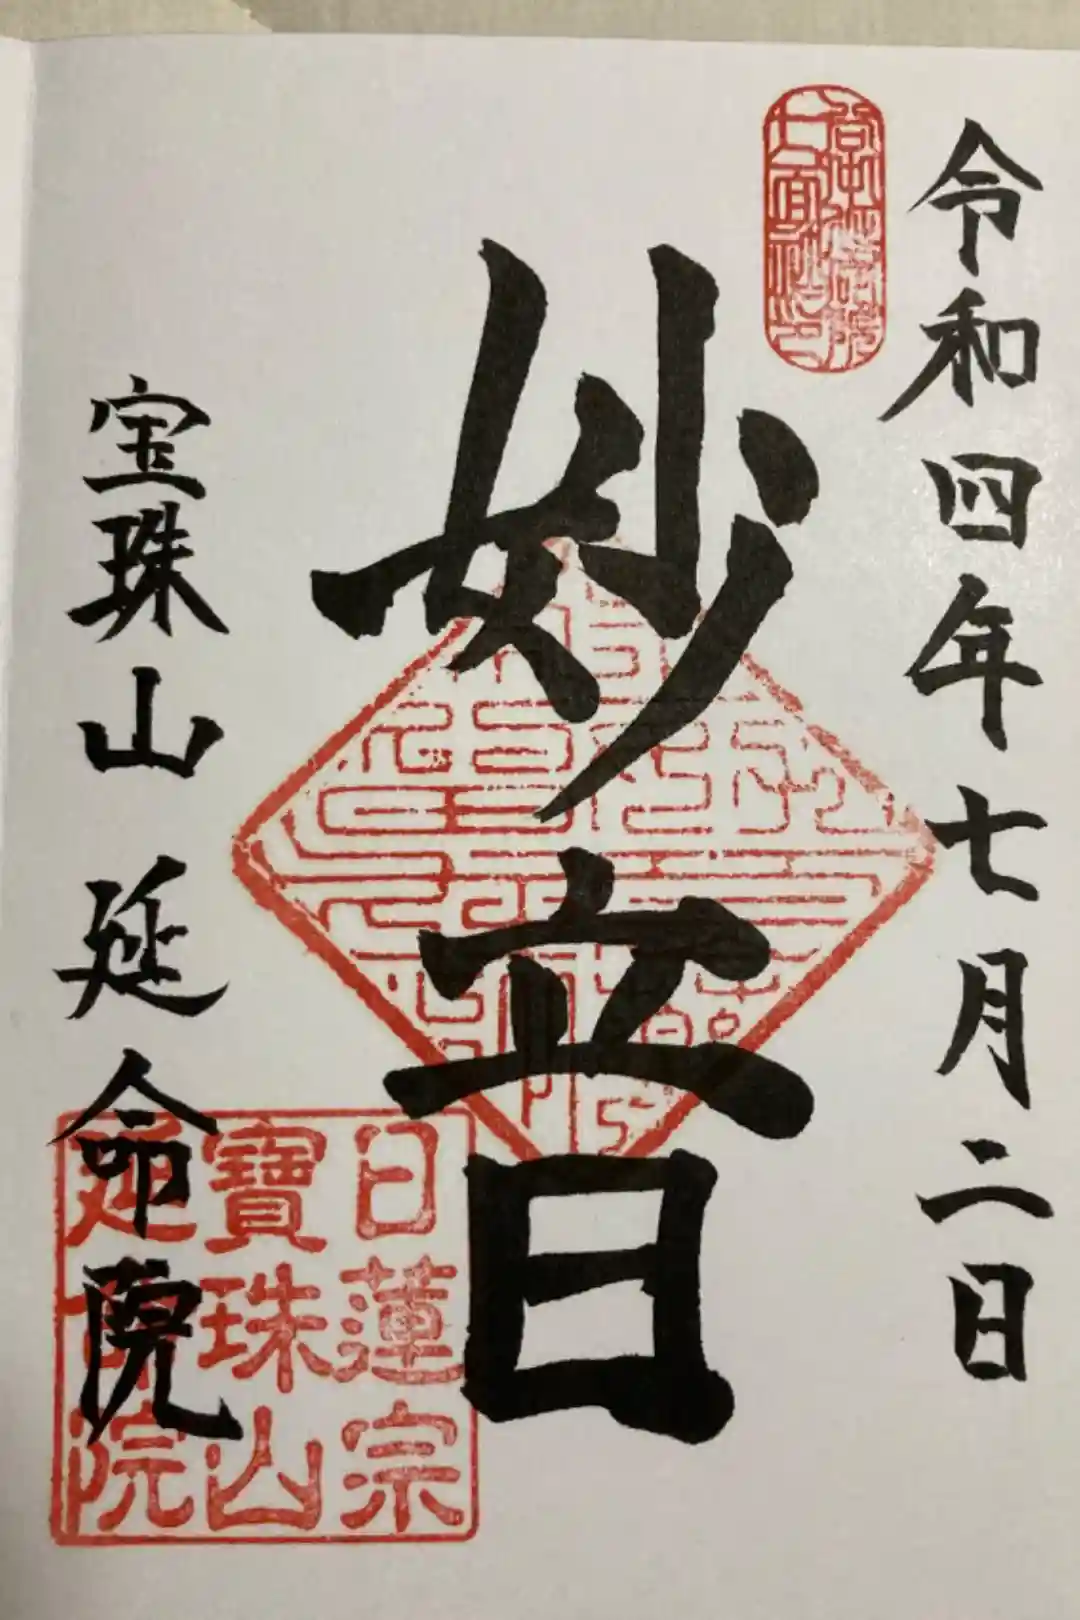 令和四年七月二日
妙立日
宝珠山延命院
日蓮宗
寶珠山
延命院